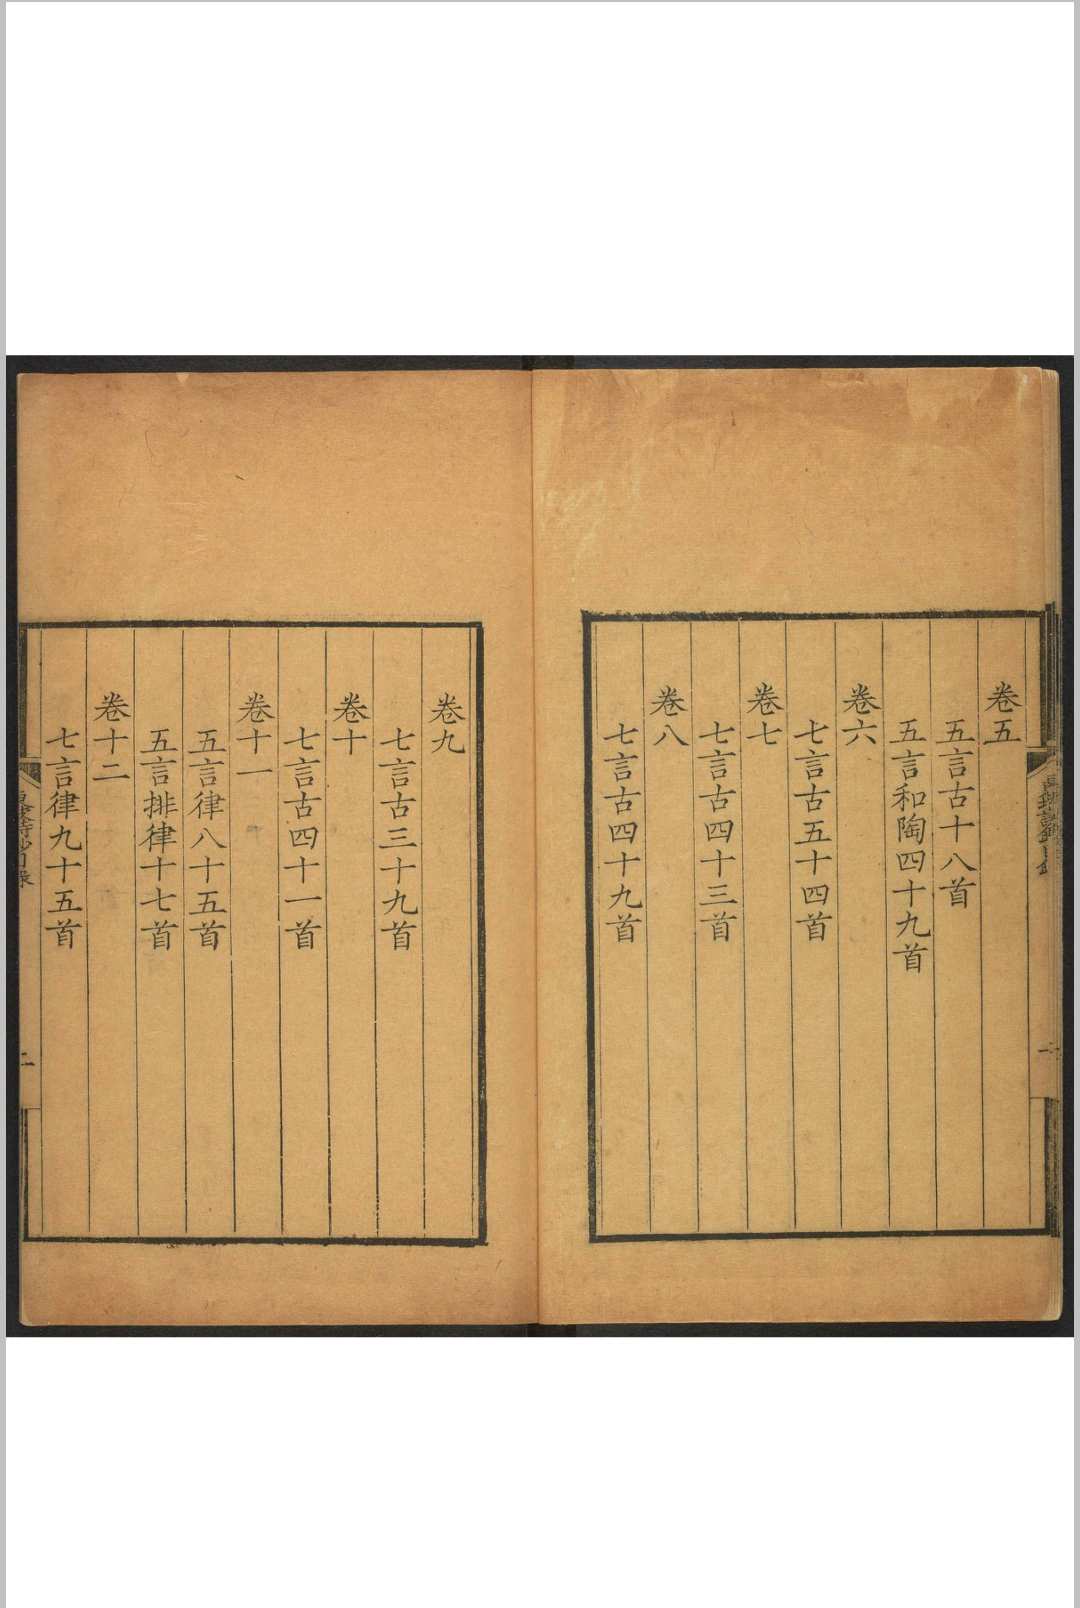 卷五
五言古十八首
五言和陶四十九首
卷六
七言古五十四首
卷七
七言古四十三首
卷八
七言古四十九首
卷九
七言古三十九首
卷十
七言古四十一首
卷十一
五言律八十五首
五言排律十七首
卷十二
七言律九十五首
二